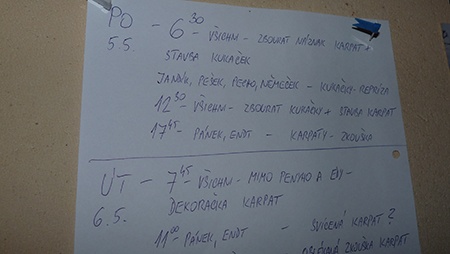 PO - 6 30 - VŠICHNI - ZBOURAT NÁZNAK KARPAT +
5.5. STAVBA KUKAČEK
JANDÍK, PEŠEK, PECKO, NĚMEČEK - KUKAČKY - REPRÍZA
12 30 - VŠICHNI - ZBOURAT KUKAČKY + STAVBA KARPAT
17 45 - PÁNEK, ENDT - KARPATY - ZKOUŠKA
ÚT - 7 45 - VŠICHNI - MIMO A EDY -
6.5. DEKORAČKA KARPAT
11 00 - PÁNEK, ENDT - SVÍCENÁ KARPAT?
ZKOUŠKA KARPAT